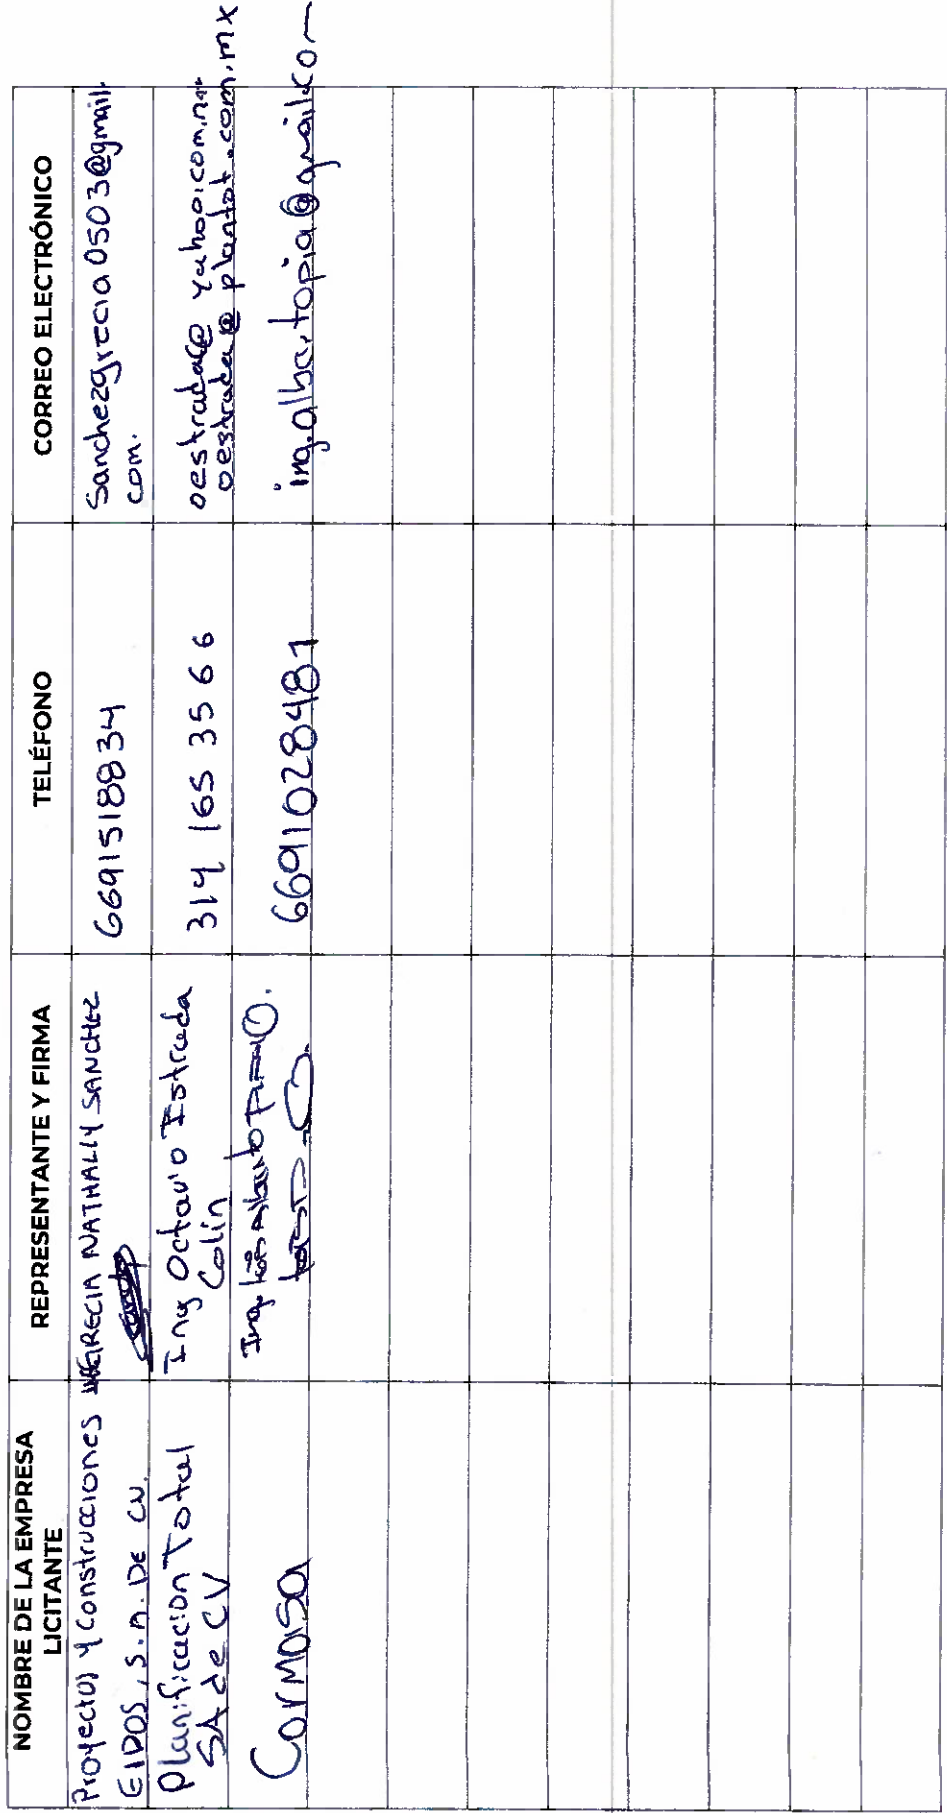 NOMBRE DE LA EMPRESA
LICITANTE
REPRESENTANTE Y FIRMA
TELÉFONO
CORREO ELECTRÓNICO
Proyectos y Construcciones
EIDOS, S.A. DE CV.
GRECIA NATHALLY SANCHEZ
6691518834
Sanchezgrecia0503@gmail.
com.
Planificacion Total
SA de CV
Ing Octavio Estrada
Colin
314 165 35 66
oestrada@ yahoo.com.mx
oestrada@ plantot.com.mx
Cormaisa
Ing. Luis Alberto
6691028481
ing.albertopia@gmail.com